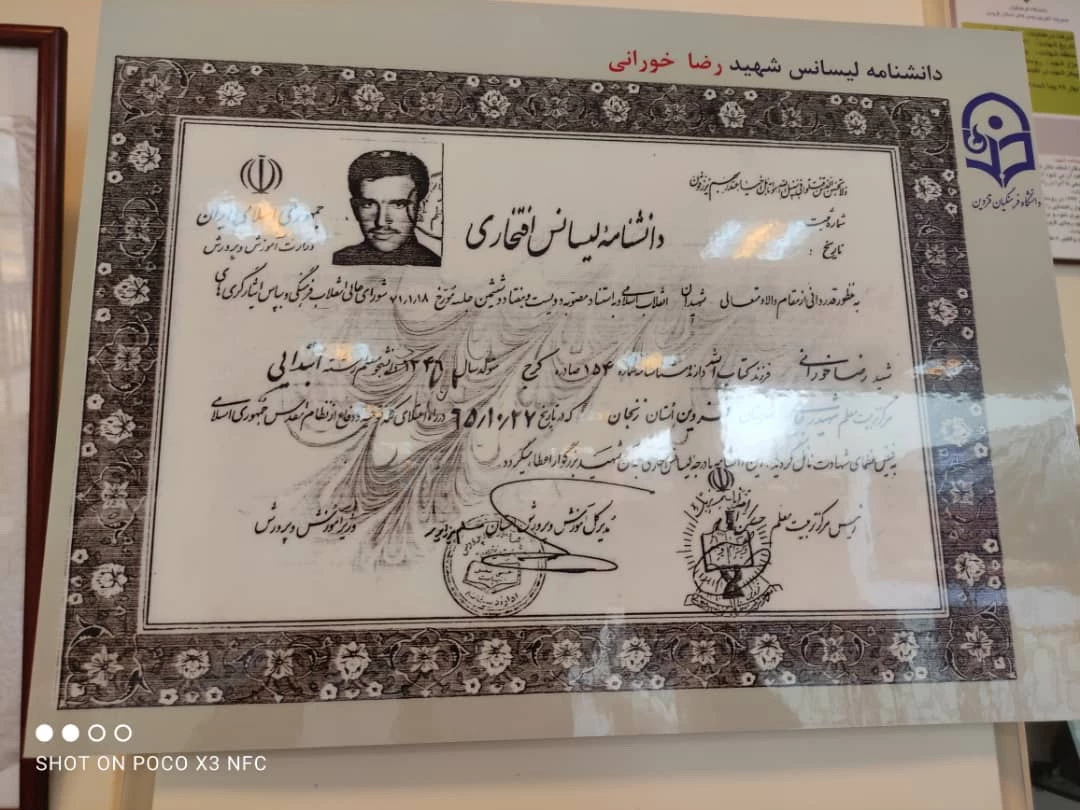 دانشنامه لیسانس شهید رضا خورانی
دانشگاه فرهنگیان قزوین
جمهوری اسلامی ایران
وزارت آموزش و پرورش
دانشنامهٔ لیسانس افتخاری
شماره ثبت
تاریخ :
به منظور قدردانی از مقام والا و متعالی شهیدان انقلاب اسلامی و به استناد مصوبه دویست و هفتاد و ششمین جلسه مورخ ۷۱/۱/۱۸ شورای عالی انقلاب فرهنگی و بپاس ایثارگری های
شهید رضا خورانی فرزند کتاب الله دارنده شناسنامه شماره ۱۵۴ صادره کرج متولد سال ۱۳۴۵ دانشجو معلم رشته ابتدایی
مرکز تربیت معلم شهید قزوین استان زنجان که در تاریخ ۶۵/۱۰/۲۷ در راه اعتلای کلمه توحید و دفاع از نظام مقدس جمهوری اسلامی
به فیض عظمای شهادت نائل گردیده درجه لیسانس افتخاری به آن شهید بزرگوار اعطا میگردد.
رئیس مرکز تربیت معلم
مدیر کل آموزش و پرورش استان
وزیر آموزش و پرورش
SHOT ON POCO X3 NFC